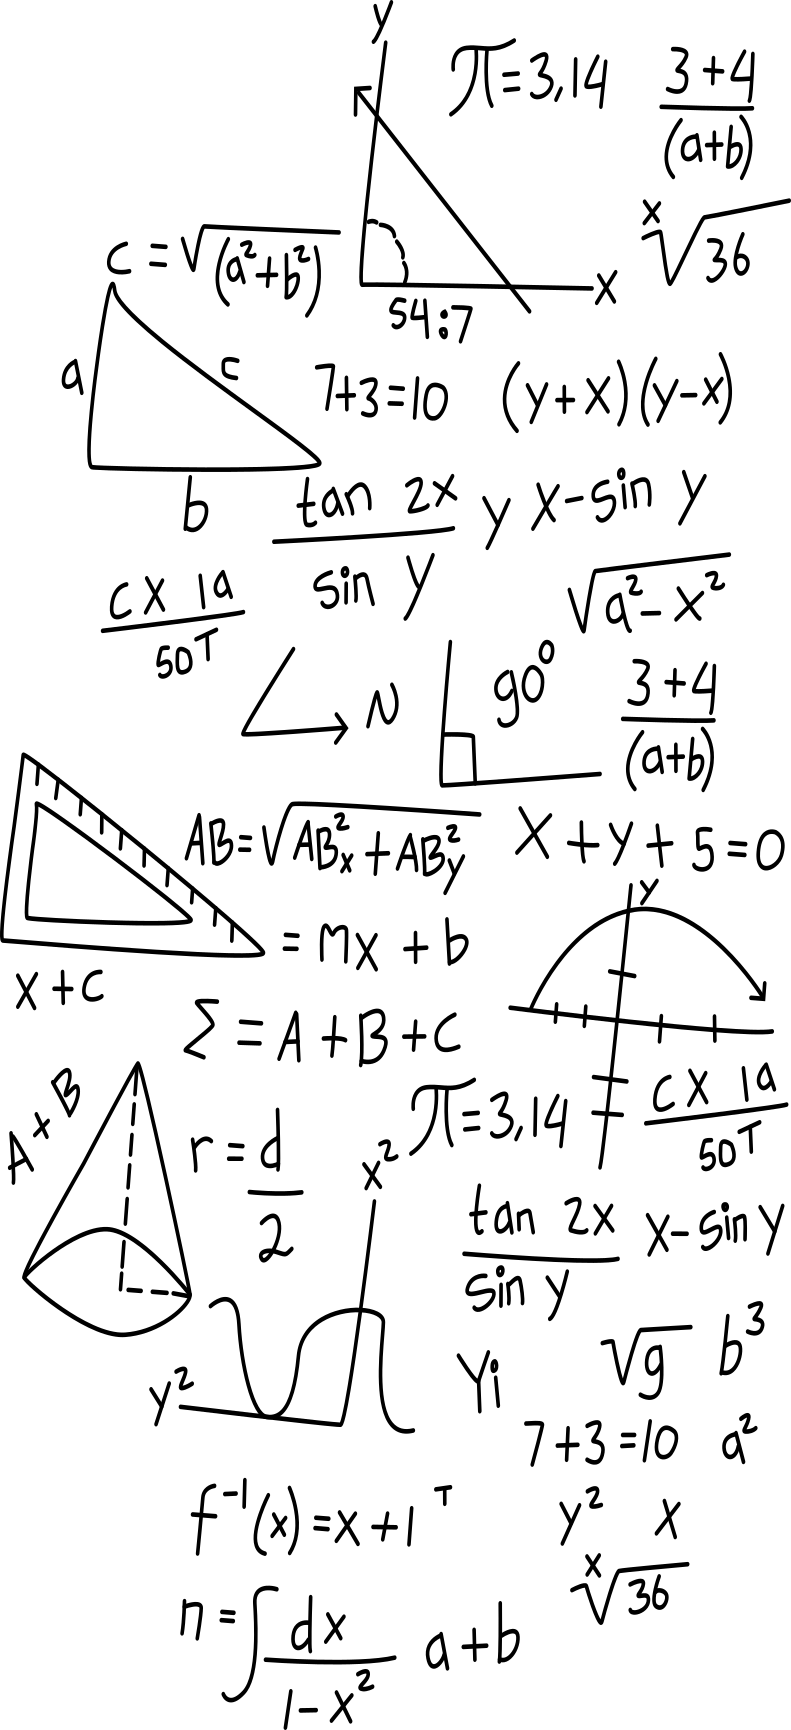 y
π=3,14
3+4
(a+b)
x√36
c=√(a²+b²)
x
54:7
a
c
7+3=10
(y+x)(y-x)
b
tan 2x
sin y
y x-sin y
cx 1a
50T
√a²-x²
N
90°
3+4
(a+b)
AB=√AB²x+AB²y
x+y+5=0
y
=mx+b
x+c
Σ=A+B+C
A+B
π=3,14
cx 1a
50T
r=d
2
x²
tan 2x
sin y
x-sin y
y²
Yi
√g
b³
7+3=10
a²
f⁻¹(x)=x+1ᵀ
y²
x
x√36
n=∫dx
1-x²
a+b